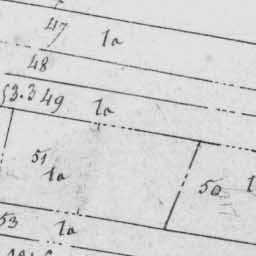 47 1a
48
53.3 49 1a
51
1a
50 1
53 1a